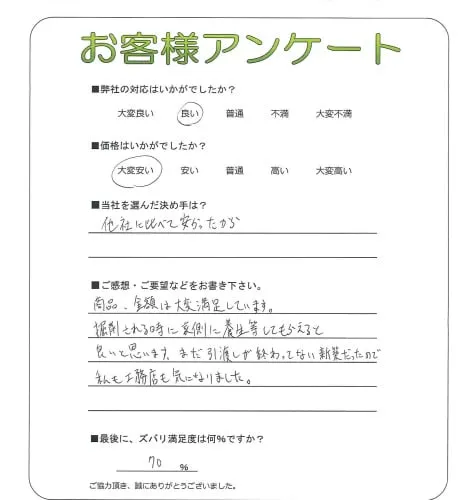 お客様アンケート
■弊社の対応はいかがでしたか？
大変良い 良い 普通 不満 大変不満
■価格はいかがでしたか？
大変安い 安い 普通 高い 大変高い
■当社を選んだ決め手は？
他社に比べて安かったから
■ご感想・ご要望などをお書き下さい。
商品、金額は大変満足しています。
掘削される時に裏側に養生等してもらえると
良いと思います。まだ引渡しが終わってない新築だったので
私も工務店も気になりました。
■最後に、ズバリ満足度は何％ですか？
70 ％
ご協力頂き、誠にありがとうございました。